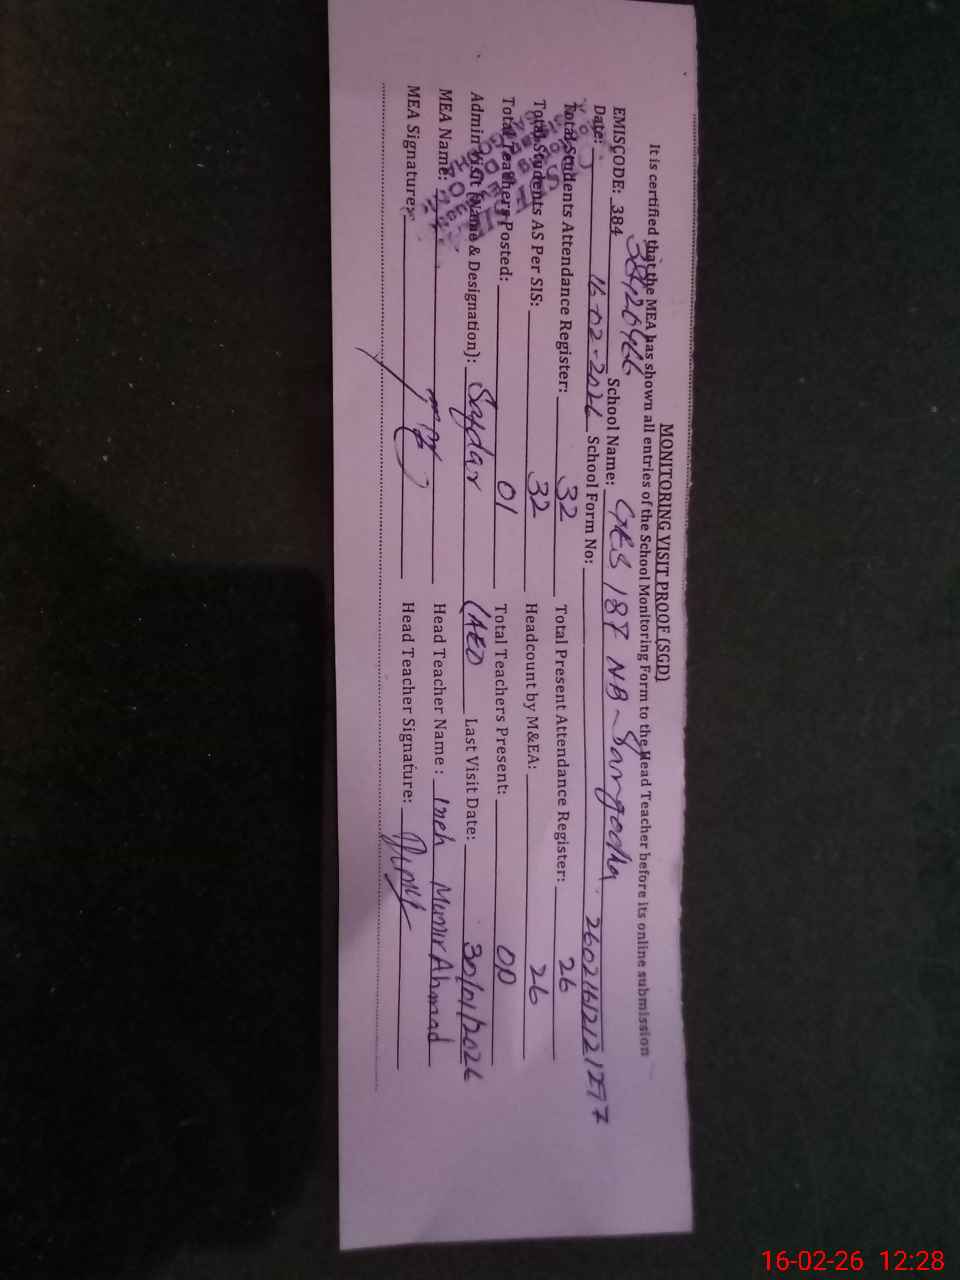 MONITORING VISIT PROOF (SGD)
It is certified that the MEA has shown all entries of the School Monitoring Form to the Head Teacher before its online submission
EMISCODE: 384 38420466 School Name: GES 187 NB-Sargodha
Date: 16-02-2026 School Form No:
Total Students Attendance Register: 32 Total Present Attendance Register: 26
Total Students AS Per SIS: 32 Headcount by M&EA: 26
Total Teachers Posted: 01 Total Teachers Present: 00
Admin Visit (Name & Designation): Safdar (AEO Last Visit Date: 30/01/2026
MEA Name: Head Teacher Name: Munir Ahmad
MEA Signature: Head Teacher Signature:
16-02-26 12:28